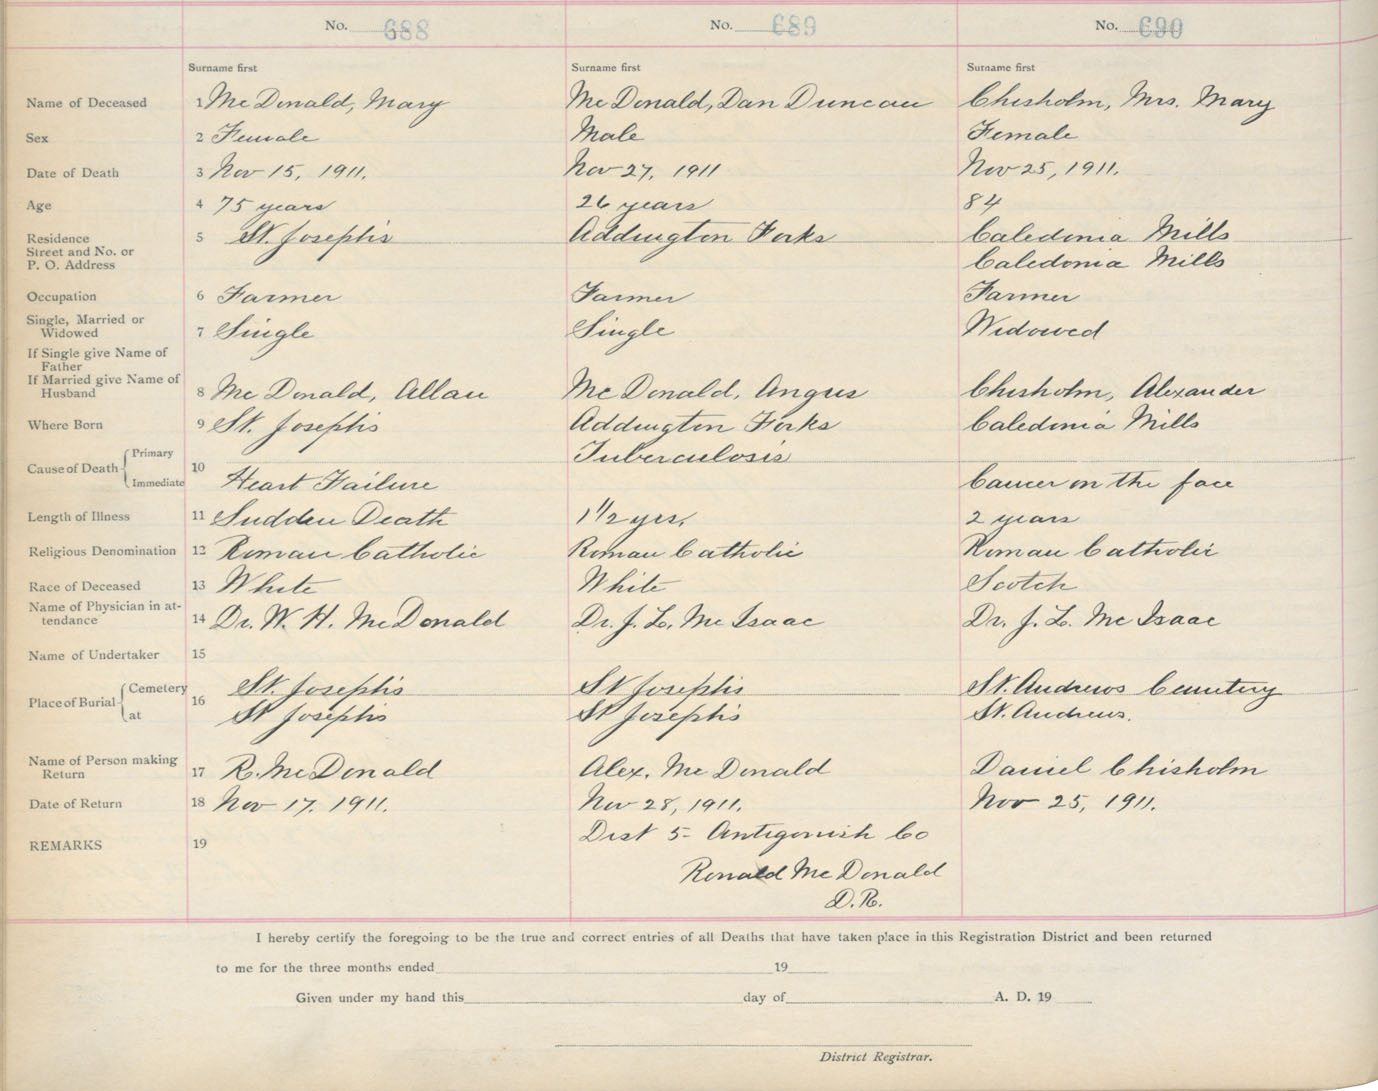 No. 688 No. 689 No. 690
Surname first Surname first Surname first
Name of Deceased 1 McDonald, Mary McDonald, Dan Duncan Chisholm, Mrs. Mary
Sex 2 Female Male Female
Date of Death 3 Nov 15, 1911. Nov 27, 1911 Nov 25, 1911.
Age 4 75 years 26 years 84
Residence 5 St. Joseph's Addington Forks Caledonia Mills
Street and No. or
P. O. Address Caledonia Mills
Occupation 6 Farmer Farmer Farmer
Single, Married or
Widowed 7 Single Single Widowed
If Single give Name of
Father
If Married give Name of
Husband 8 McDonald, Allan McDonald, Angus Chisholm, Alexander
Where Born 9 St. Joseph's Addington Forks Caledonia Mills
Cause of Death { Primary 10 Tuberculosis
Immediate Heart Failure Cancer on the face
Length of Illness 11 Sudden Death 1 1/2 yrs. 2 years
Religious Denomination 12 Roman Catholic Roman Catholic Roman Catholic
Race of Deceased 13 White White Scotch
Name of Physician in at-
tendance 14 Dr. W. H. McDonald Dr. J. L. McIsaac Dr. J. L. McIsaac
Name of Undertaker 15
Place of Burial { Cemetery 16 St. Joseph's St Joseph's St. Andrews Cemetery
at St Joseph's St Joseph's St. Andrews.
Name of Person making
Return 17 R. McDonald Alex. McDonald Daniel Chisholm
Date of Return 18 Nov 17, 1911. Nov 28, 1911. Nov 25, 1911.
REMARKS 19 Dist 5- Antigonish Co
Ronald McDonald
D.R.
I hereby certify the foregoing to be the true and correct entries of all Deaths that have taken place in this Registration District and been returned
to me for the three months ended 19
Given under my hand this day of A. D. 19
District Registrar.